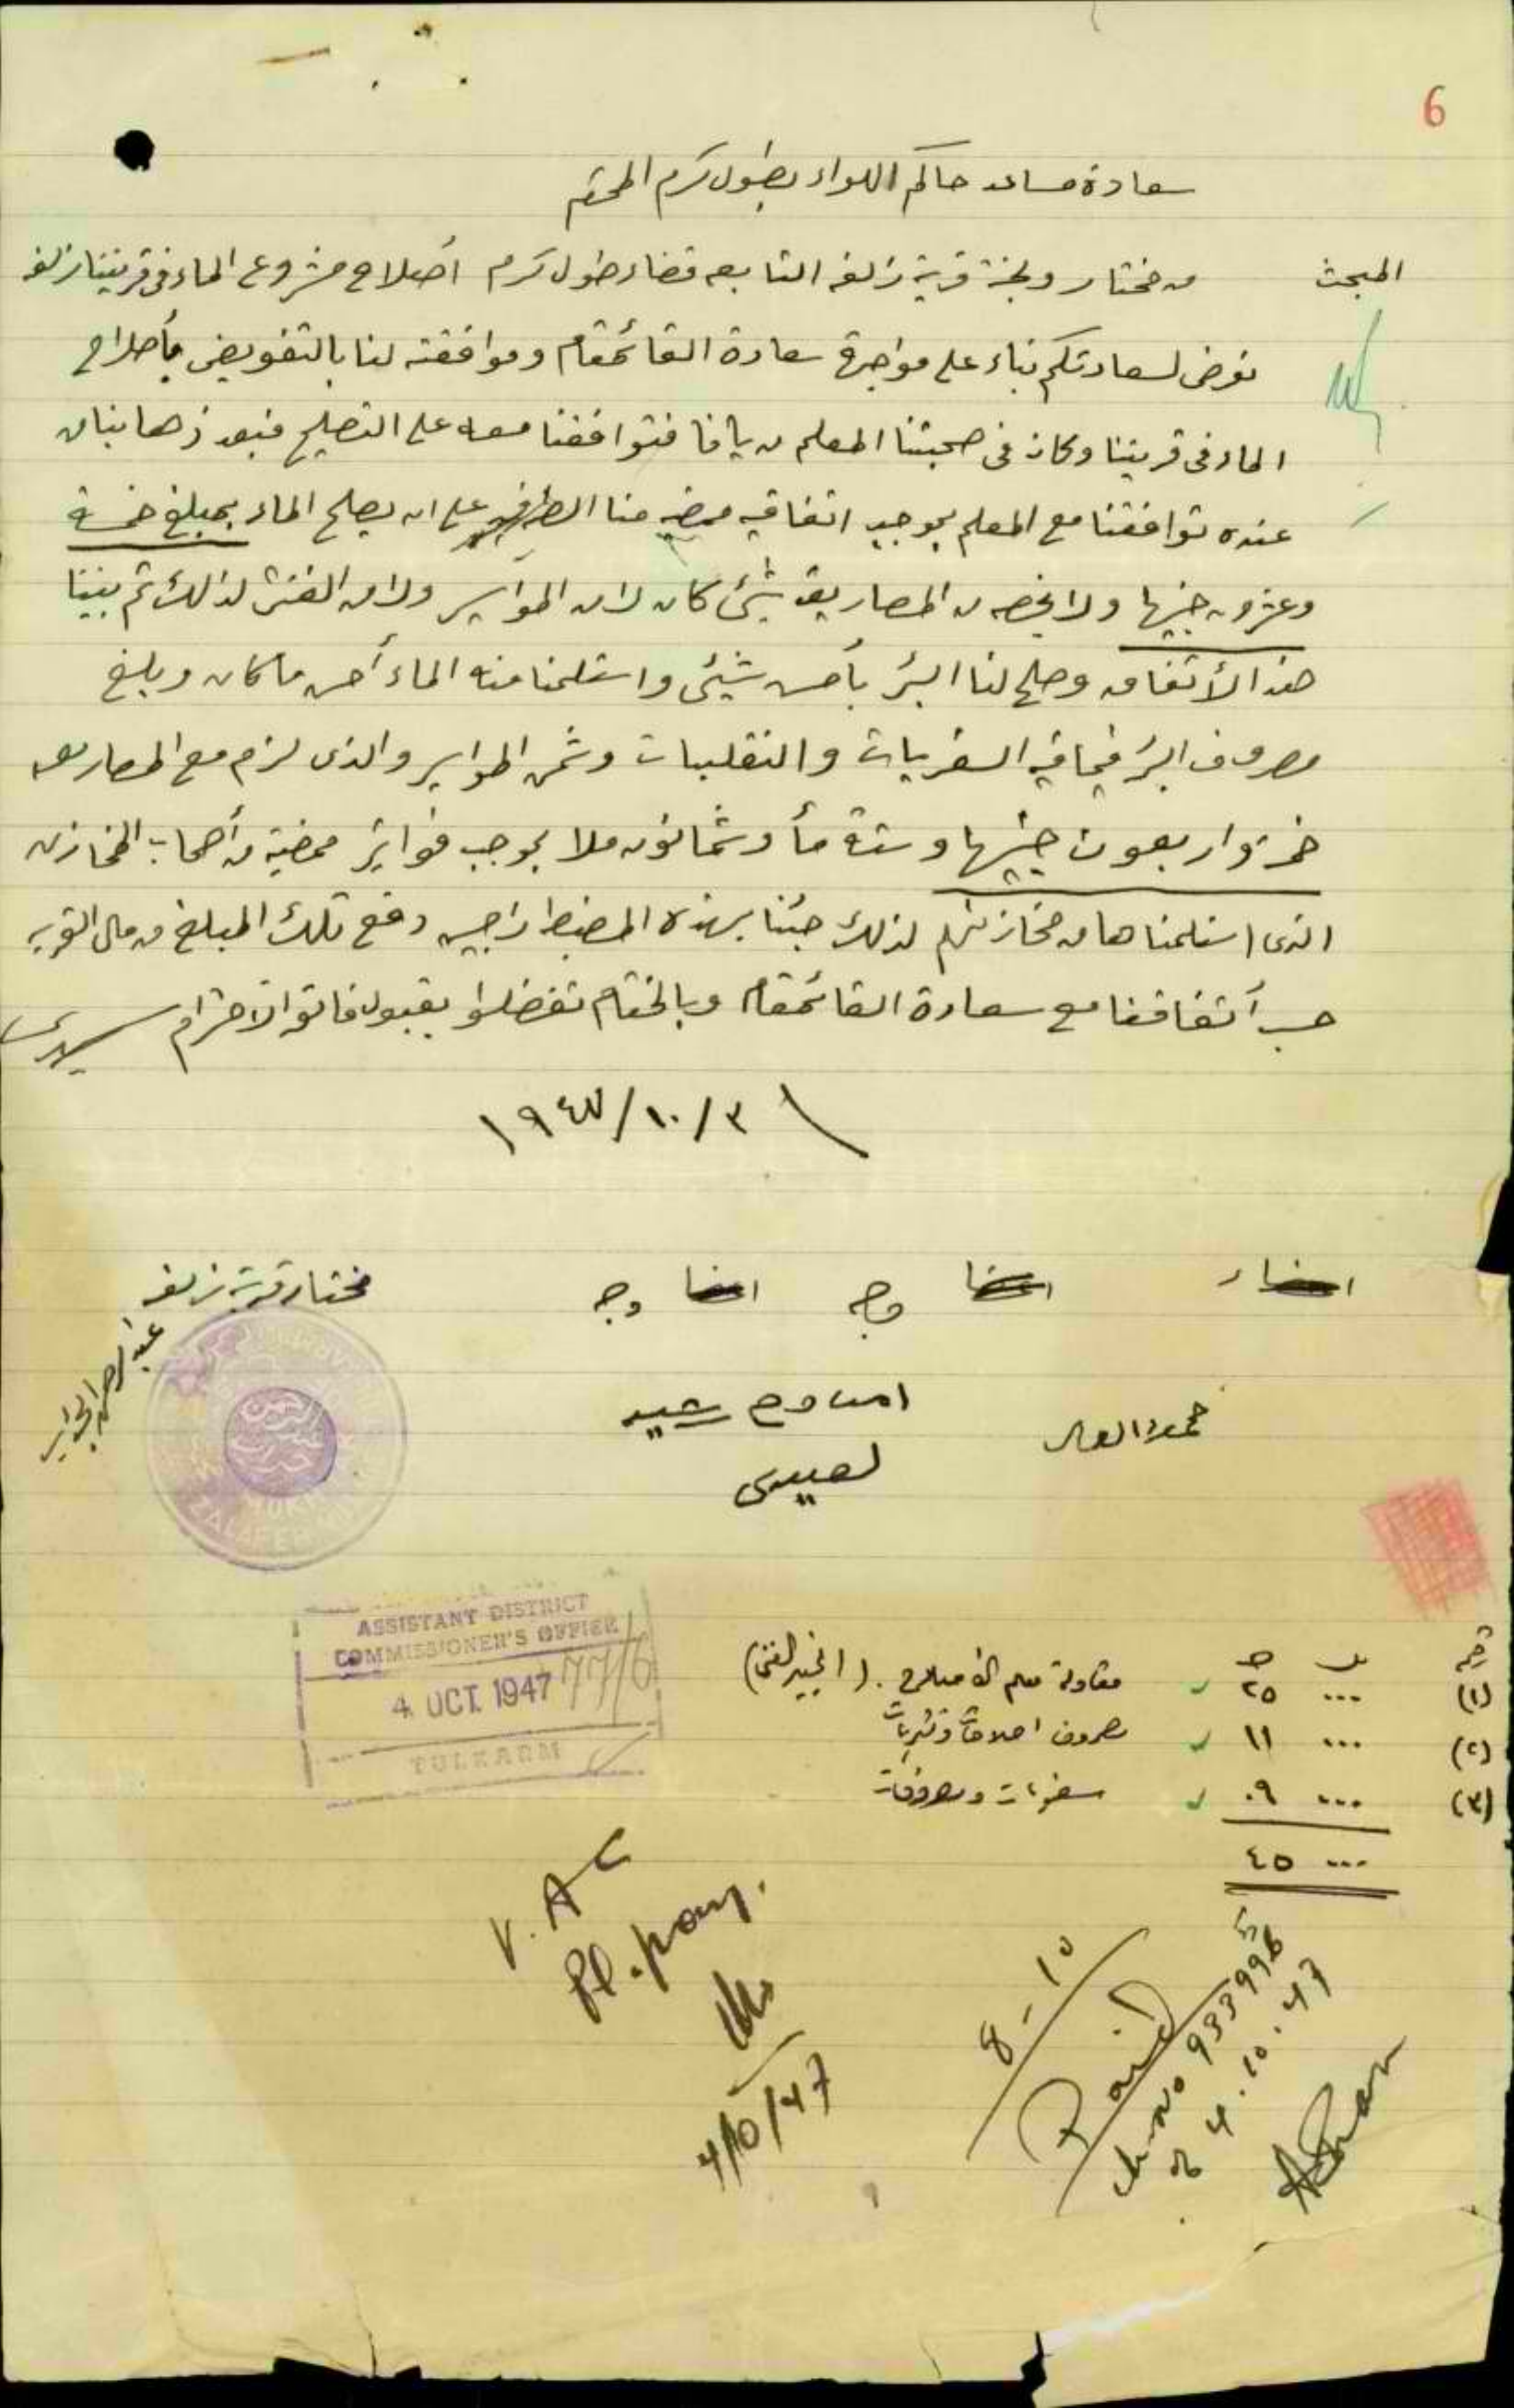 6
سعادة مساعد حاكم اللواء بطولكرم المحترم
المبحث من مختار ولجنة قرية زلفه التابعه قضاء طول كرم أصلاح مشروع الماء في قريتنا زلفه
نعرض لسعادتكم بناء على مواجهة سعادة القائمقام وموافقته لنا بالتفويض بأصلاح
الماء في قريتنا وكان في صحبتنا المعلم من يافا فتوافقنا معه على التصليح فبعد ذهابنا من
عنده توافقنا مع المعلم بموجب اتفاقيه ممضيه منا الطرفين على ان يصلح الماء بمبلغ خمسة
وعشرون جنيها ولا يخصه من المصاريف شيئ كان لا من المواسير ولا من الفتش لذالك تم بيننا
هذا الأتفاق وصلح لنا البئر بأحسن شيئى واستلمنا منه الماء أحسن ما كان وبلغ
مصروف البئر فيما فيه السفريات والنقليات وثمن المواسير والذى لزم مع المصاريف
خمسة واربعون جنيها وستة مأة وثمانون ملا بموجب فواتير ممضية من أصحاب المخازن
الذى استلمناها من مخازنهم لذلك جئنا بهذه المضبطه راجين دفع تلك المبلغ من مال القريه
حسب أتفاقنا مع سعادة القائمقام وبالختام تفضلوا بقبول فائق الاحترام سيدى
١٩٤٧/١٠/٣
اعضاء اعضا وجه اعضا وجه مختار قرية زلفه
عبد الرحمن الجابر
رشيد
لعيسى
ASSISTANT DISTRICT
COMMISSIONER'S OFFICE
4 OCT. 1947 77/6
TULKARM
رقم مل ج
(١) ... ٢٥ مقاولة معلم الأصلاح. (الخبير الفني)
(٢) ... ١١ مصروف اصلاحات ونثريات
(٣) ... ٠٩ سفريات ومصروفات
... ٤٥
V. A C
Pl. pay.
4/10/47
8-10
Paid
ch no 933996
of 4.10.47